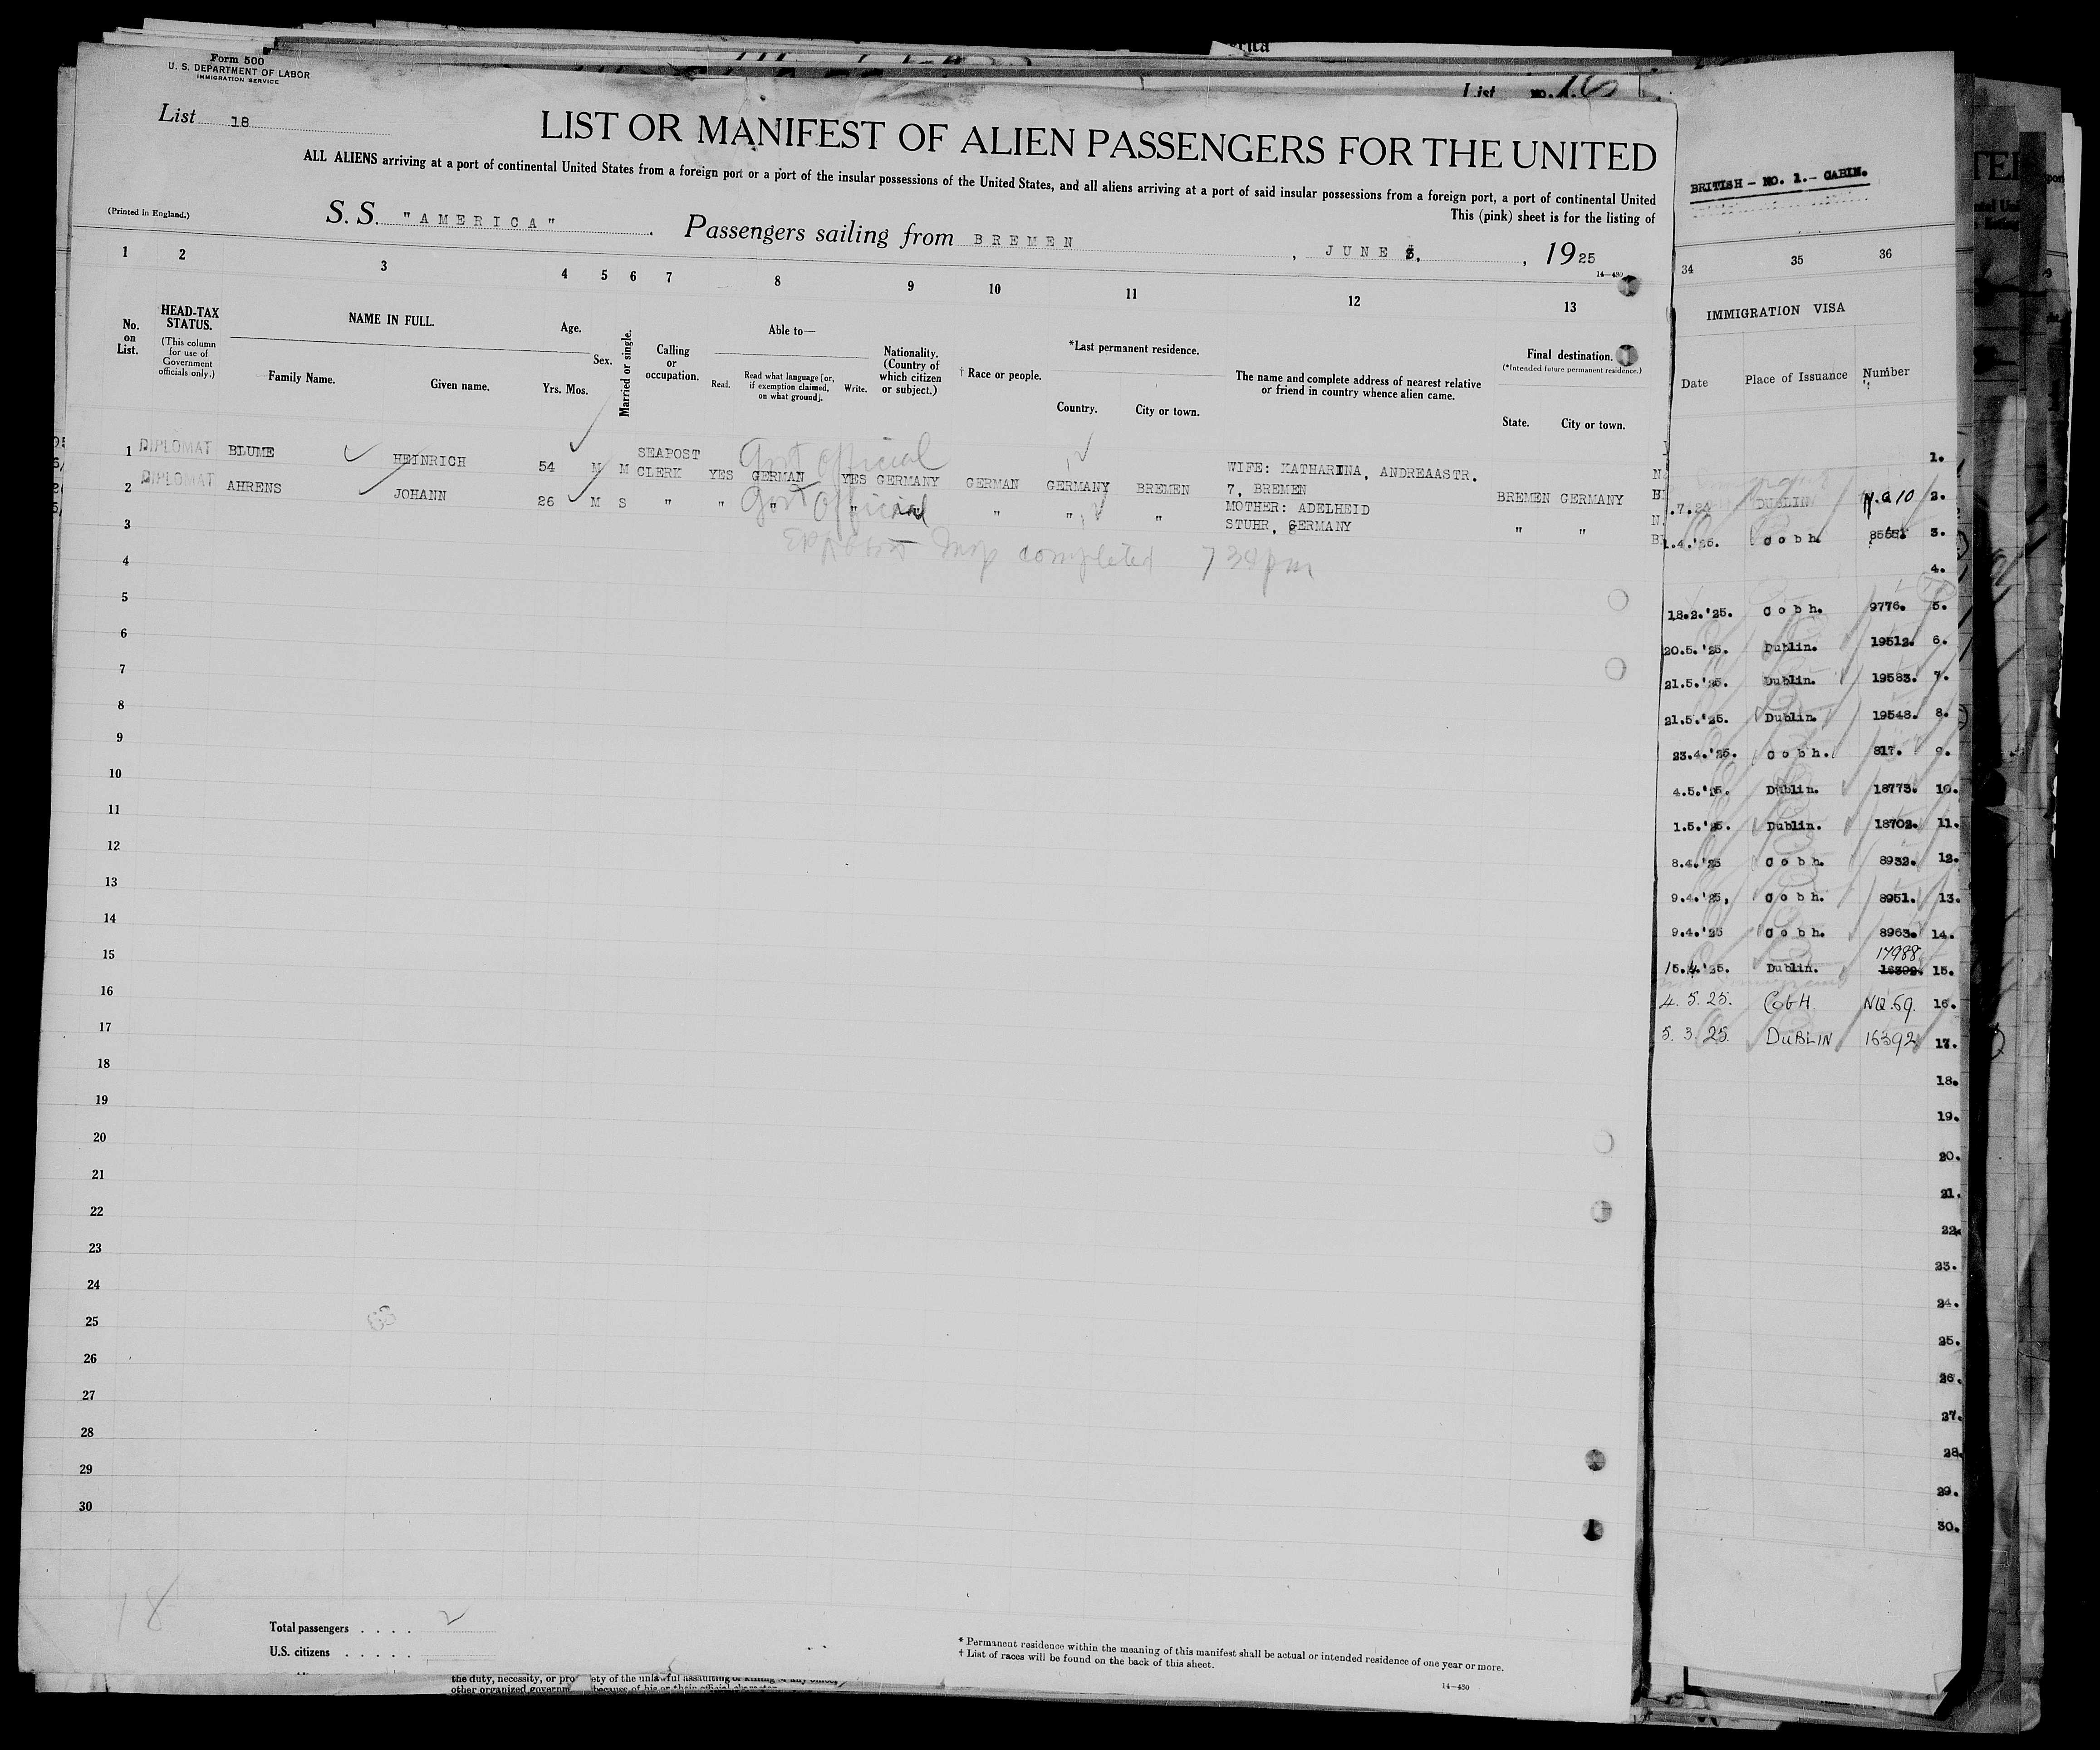 Form 500
U. S. DEPARTMENT OF LABOR
IMMIGRATION SERVICE
List 18
List no.
LIST OR MANIFEST OF ALIEN PASSENGERS FOR THE UNITED
ALL ALIENS arriving at a port of continental United States from a foreign port or a port of the insular possessions of the United States, and all aliens arriving at a port of said insular possessions from a foreign port, a port of continental United
This (pink) sheet is for the listing of
(Printed in England.)
S. S. "AMERICA". Passengers sailing from BREMEN, JUNE 3, 1925
14—430
1 2 3 4 5 6 7 8 9 10 11 12 13
No. on List.
HEAD-TAX STATUS.
(This column for use of Government officials only.)
NAME IN FULL.
Family Name. Given name.
Age.
Yrs. Mos.
Sex.
Married or single.
Calling or occupation.
Able to—
Read. Read what language [or, if exemption claimed, on what ground]. Write.
Nationality. (Country of which citizen or subject.)
† Race or people.
*Last permanent residence.
Country. City or town.
The name and complete address of nearest relative or friend in country whence alien came.
Final destination.
(*Intended future permanent residence.)
State. City or town.
Govt Official
1 DIPLOMAT BLUME HEINRICH 54 M M SEAPOST CLERK YES GERMAN YES GERMANY GERMAN GERMANY BREMEN WIFE: KATHARINA, ANDREAASTR. 7, BREMEN BREMEN GERMANY
Govt Official
2 DIPLOMAT AHRENS JOHANN 26 M S " " " " " " " " MOTHER: ADELHEID STUHR, GERMANY " "
3
Insp completed 7 34 pm
4
5
6
7
8
9
10
11
12
13
14
15
16
17
18
19
20
21
22
23
24
25
26
27
28
29
30
18
Total passengers . . . . 2
U.S. citizens . . . . .
* Permanent residence within the meaning of this manifest shall be actual or intended residence of one year or more.
† List of races will be found on the back of this sheet.
14—430
the duty, necessity, or
ety of the unlawful assaulting or killing of any
other organized
because of his or their official character
BRITISH - NO. 1.- CABIN.
34 35 36
IMMIGRATION VISA
Date Place of Issuance Number
1.
DUBLIN N.Q 10 2.
1.4.'25. Cobh. 3.
4.
18.2.'25. Cobh. 9776. 5.
20.5.'25. Dublin. 19512. 6.
21.5.'25. Dublin. 19583. 7.
21.5.'25. Dublin. 19548. 8.
23.4.'25. Cobh. 817. 9.
4.5.'25. Dublin. 18773. 10.
1.5.'25. Dublin. 18702. 11.
8.4.'25 Cobh. 8932. 12.
9.4.'25, Cobh. 8951. 13.
9.4.'25 Cobh. 8963. 14.
17988
15.4.'25. Dublin. 16392. 15.
4. 5. 25. COBH NQ.59. 16.
5. 3. 25. DUBLIN 16392 17.
18.
19.
20.
21.
22.
23.
24.
25.
26.
27.
28.
29.
30.